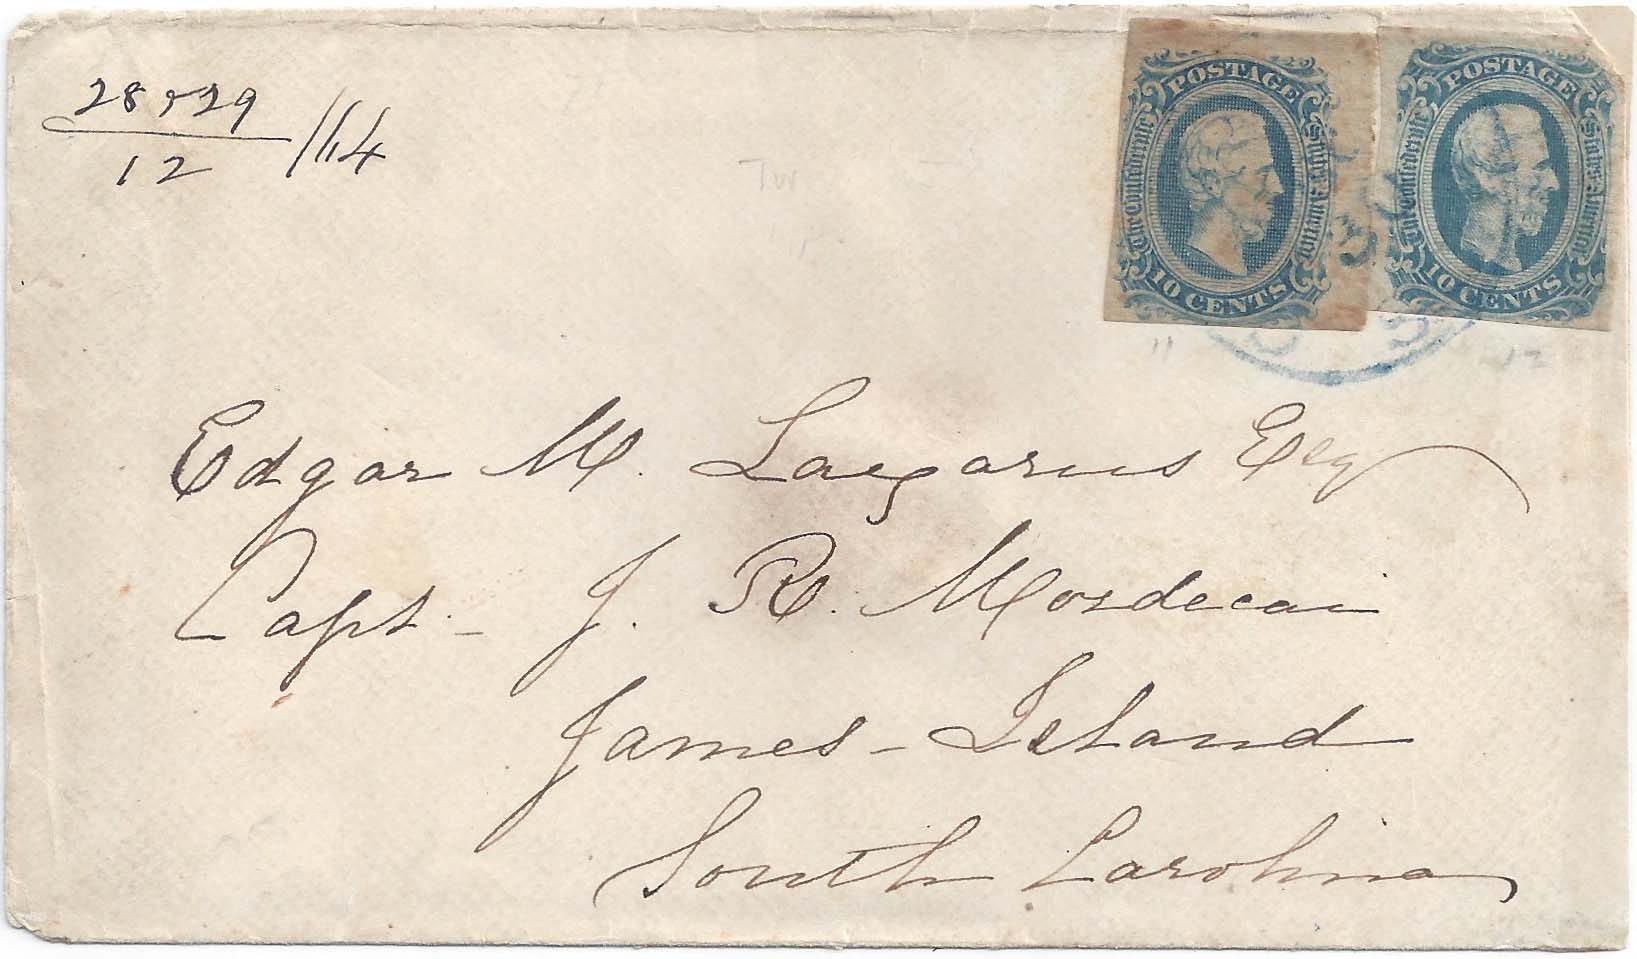 28 & 29
12 //64
POSTAGE
The Confederate States America
10 CENTS
POSTAGE
The Confederate States America
10 CENTS
11
12
Edgar M. Lazarus Esq
Capt - J. R. Mordecai
James - Island
South Carolina